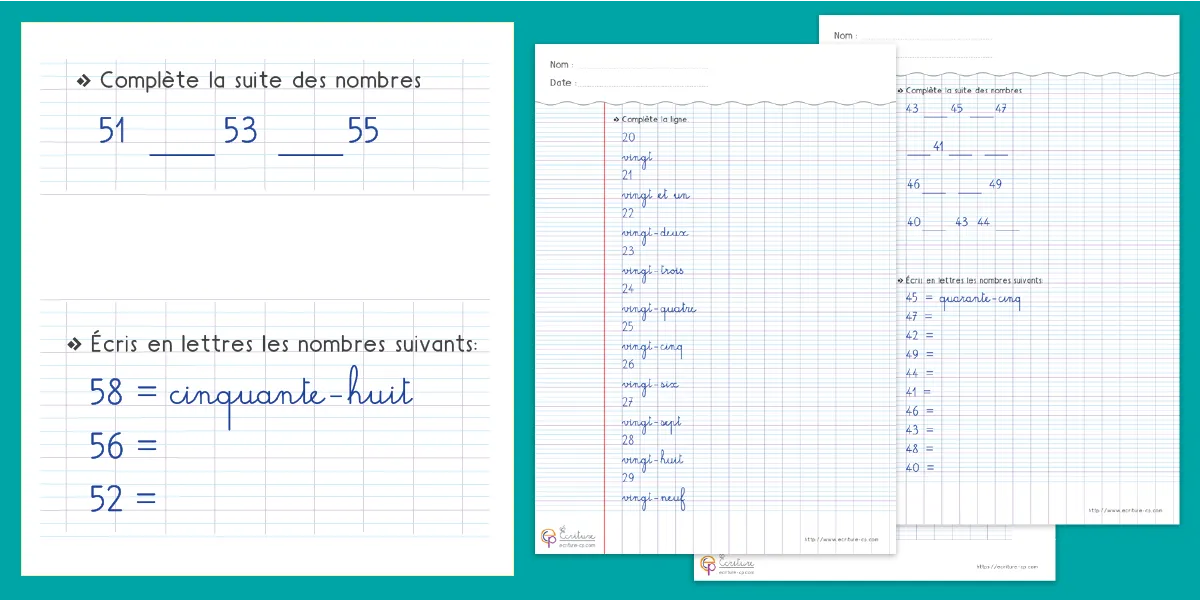 Complète la suite des nombres
51 ____ 53 ____ 55
Écris en lettres les nombres suivants:
58 = cinquante-huit
56 =
52 =
Nom :
Date :
Complète la ligne
20
vingt
21
vingt et un
22
vingt-deux
23
vingt-trois
24
vingt-quatre
25
vingt-cinq
26
vingt-six
27
vingt-sept
28
vingt-huit
29
vingt-neuf
Écriture
ecriture-cp.com
http://www.ecriture-cp.com
Nom :
Complète la suite des nombres
43 ____ 45 ____ 47
____ 41 ____ ____
46 ____ ____ 49
40 ____ 43 44 ____
Écris en lettres les nombres suivants
45 = quarante-cinq
47 =
42 =
49 =
44 =
41 =
46 =
43 =
48 =
40 =
http://www.ecriture-cp.com
Écriture
ecriture-cp.com
http://www.ecriture-cp.com